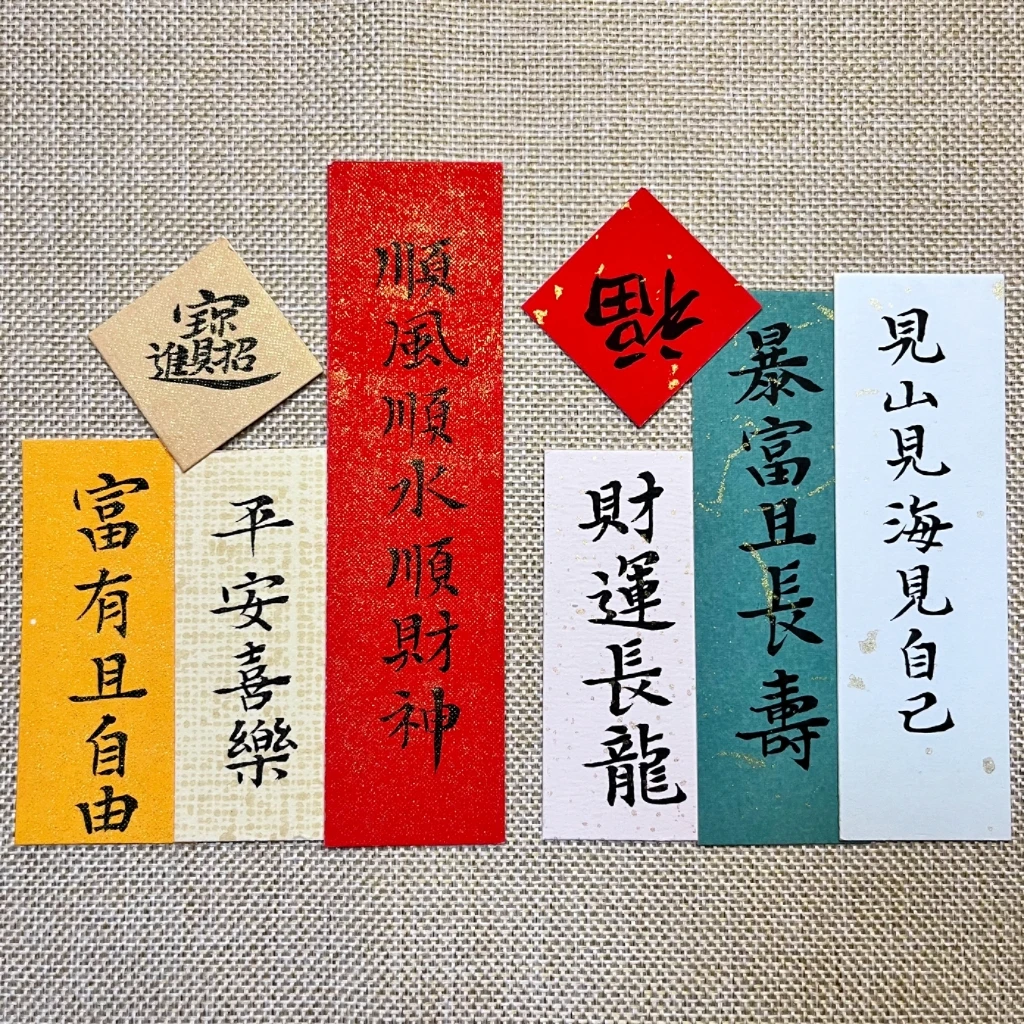 招財進寶
富有且自由
平安喜樂
順風順水順財神
福
財運長龍
暴富且長壽
見山見海見自己